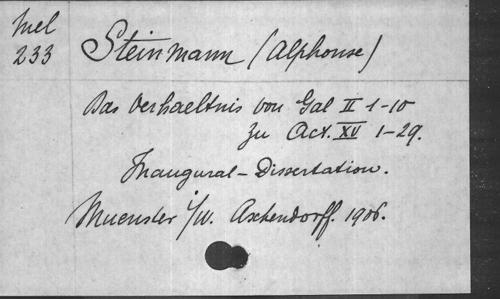 Mel
233
Steinmann (Alphonse)
Das Verhaeltnis von Gal II 1-10
zu Act. XV 1-29.
Inaugural-Dissertation.
Muenster i/W. Aschendorff. 1906.